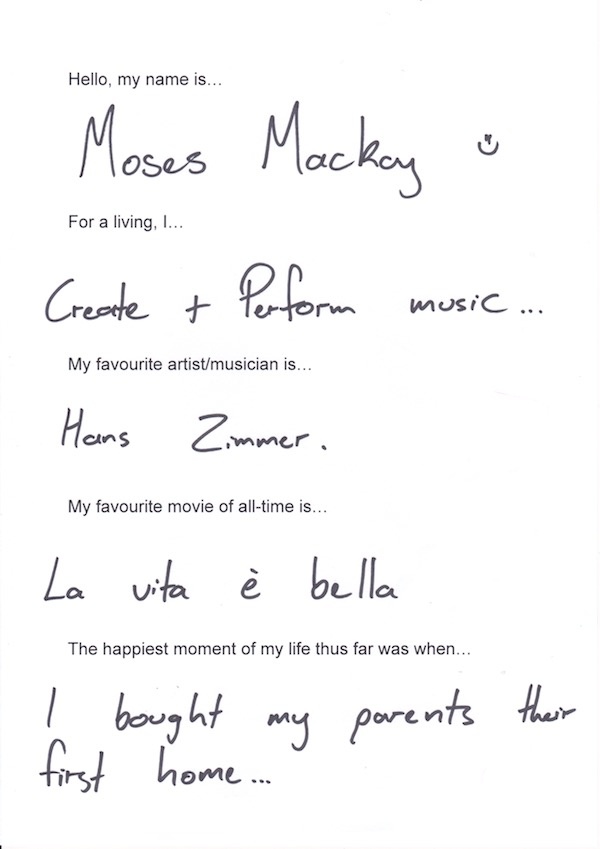 Hello, my name is...
Moses Mackay
For a living, I...
Create + Perform music...
My favourite artist/musician is...
Hans Zimmer.
My favourite movie of all-time is...
La vita è bella
The happiest moment of my life thus far was when...
I bought my parents their
first home...